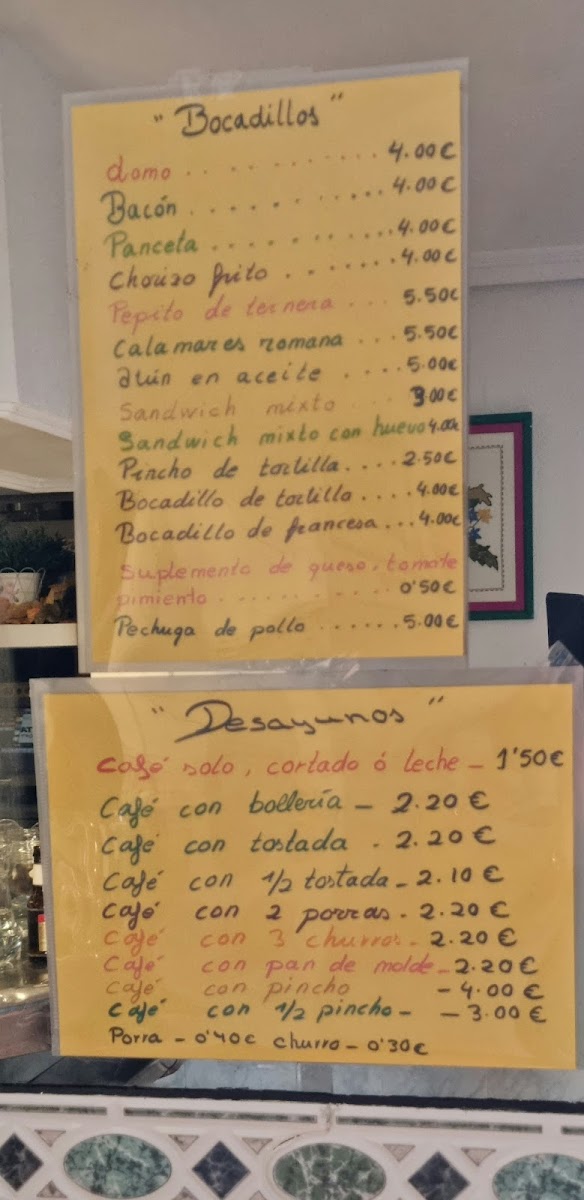 "Bocadillos"
Lomo ............ 4.00€
Bacón ............ 4.00€
Panceta ............ 4.00€
Chorizo frito ....... 4.00€
Pepito de ternera ... 5.50€
Calamares romana ... 5.50€
Atún en aceite .... 5.00€
Sandwich mixto ... 3.00€
Sandwich mixto con huevo 4.00€
Pincho de tortilla.... 2.50€
Bocadillo de tortilla .... 4.00€
Bocadillo de francesa ... 4.00€
Suplemento de queso, tomate
pimiento .......... 0'50€
Pechuga de pollo ...... 5.00€
"Desayunos"
Café solo, cortado ó leche - 1'50€
Café con bollería - 2.20€
Café con tostada - 2.20€
Café con 1/2 tostada - 2.10€
Café con 2 porras - 2.20€
Café con 3 churros - 2.20€
Café con pan de molde - 2.20€
Café con pincho - 4.00€
Café con 1/2 pincho - - 3.00€
Porra - 0'40€ churro - 0'30€